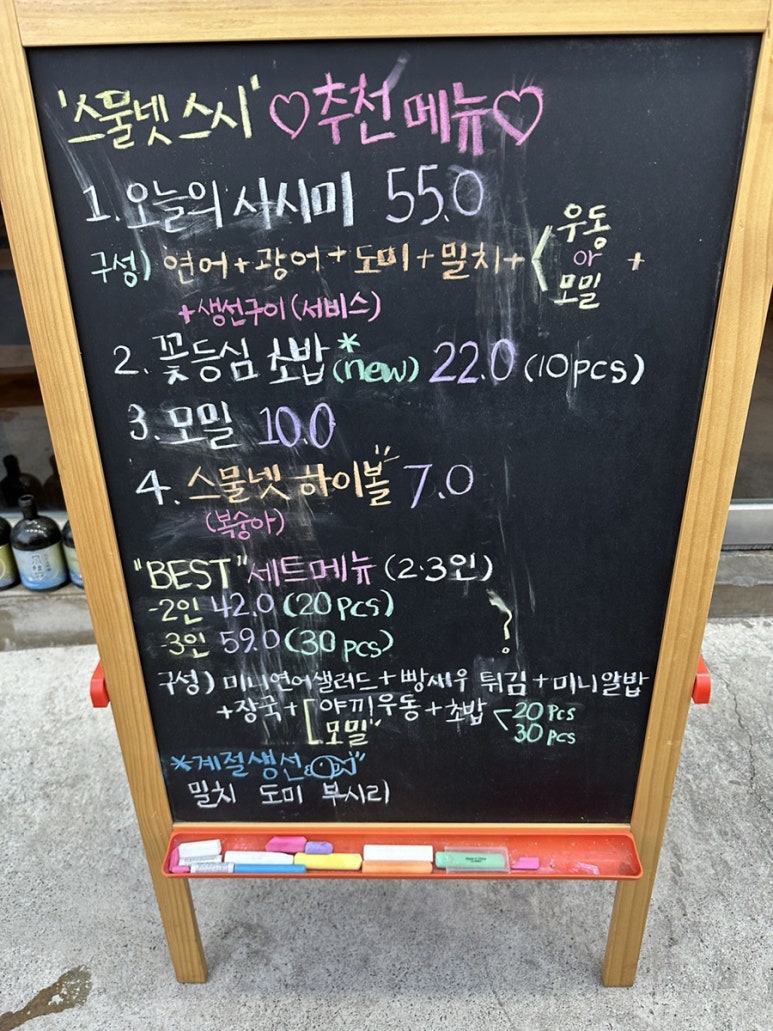 '스물넷 스시' ♡추천 메뉴♡
1. 오늘의 사시미 55.0
구성) 연어+광어+도미+밀치+<우동 or 모밀 +
+생선구이(서비스)
2. 꽃등심 초밥*(new) 22.0 (10pcs)
3. 모밀 10.0
4. 스물넷 하이볼 7.0
(복숭아)
"BEST" 세트메뉴 (2·3인)
-2인 42.0 (20pcs)
-3인 59.0 (30pcs)
구성) 미니연어샐러드+빵새우 튀김+미니알밥
+장국+[야끼우동 모밀"+초밥<20pcs 30pcs
*계절생선"
밀치 도미 부시리